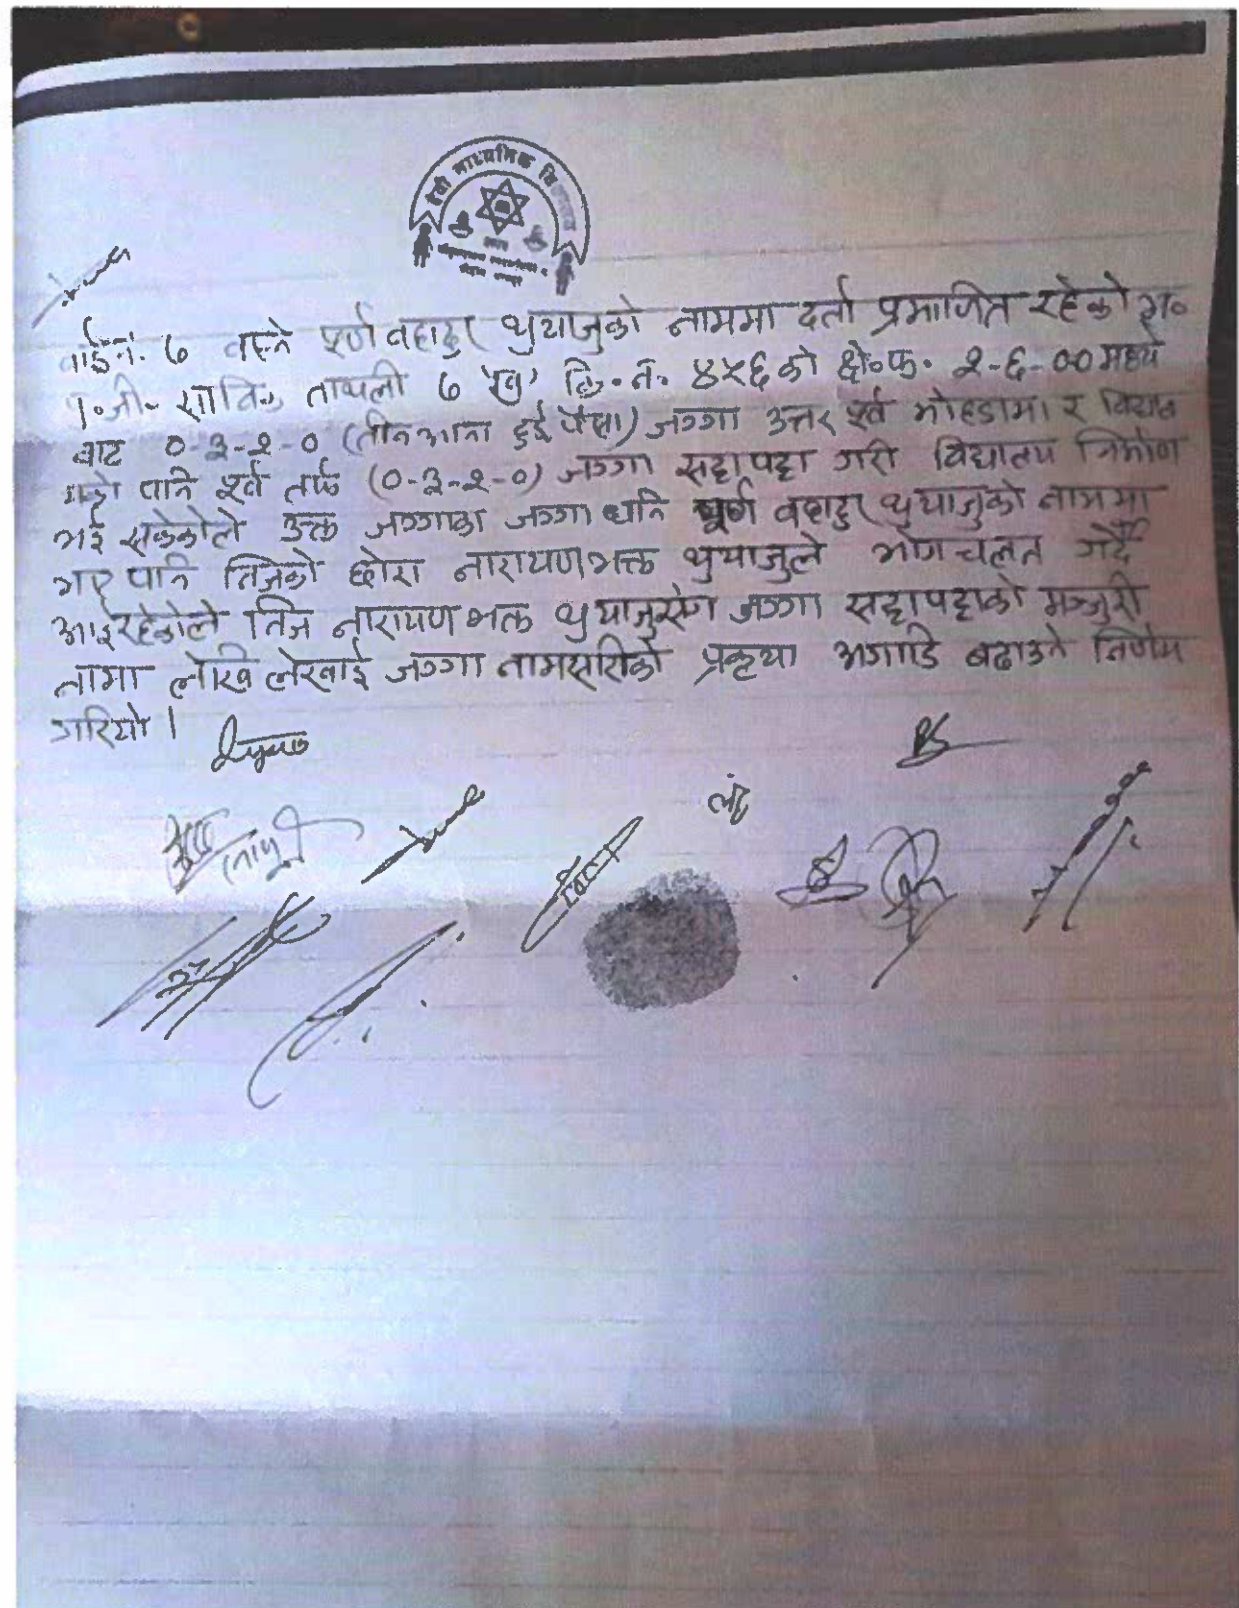 देवी माध्यमिक
वार्ड नं. ७ बस्ने पूर्ण बहादुर थुयाजुको नाममा दर्ता प्रमाणित रहेको
ताथली ७ 'ख' कि. नं. ४५६ को क्षे॰फ॰ २-६-०० मध्ये
बाट ०-३-२-० (तीन आना दुई पैसा) जग्गा उत्तर पूर्व मोहडामा र
पनि पूर्व तर्फ (०-३-२-०) जग्गा सट्टापट्टा गरी विद्यालय निर्माण
भई सकेकोले उक्त जग्गाका जग्गा धनि पूर्ण बहादुर थुयाजुको नाममा
भए पनि निजको छोरा नारायण भक्त थुयाजुले भोगचलन गर्दै
आईरहेकोले निज नारायण भक्त थुयाजुसंग जग्गा सट्टापट्टाको मञ्जुरी
नामा लेखि लेखाई जग्गा नामसारीको प्रकृया अगाडि बढाउने निर्णय
गरियो ।